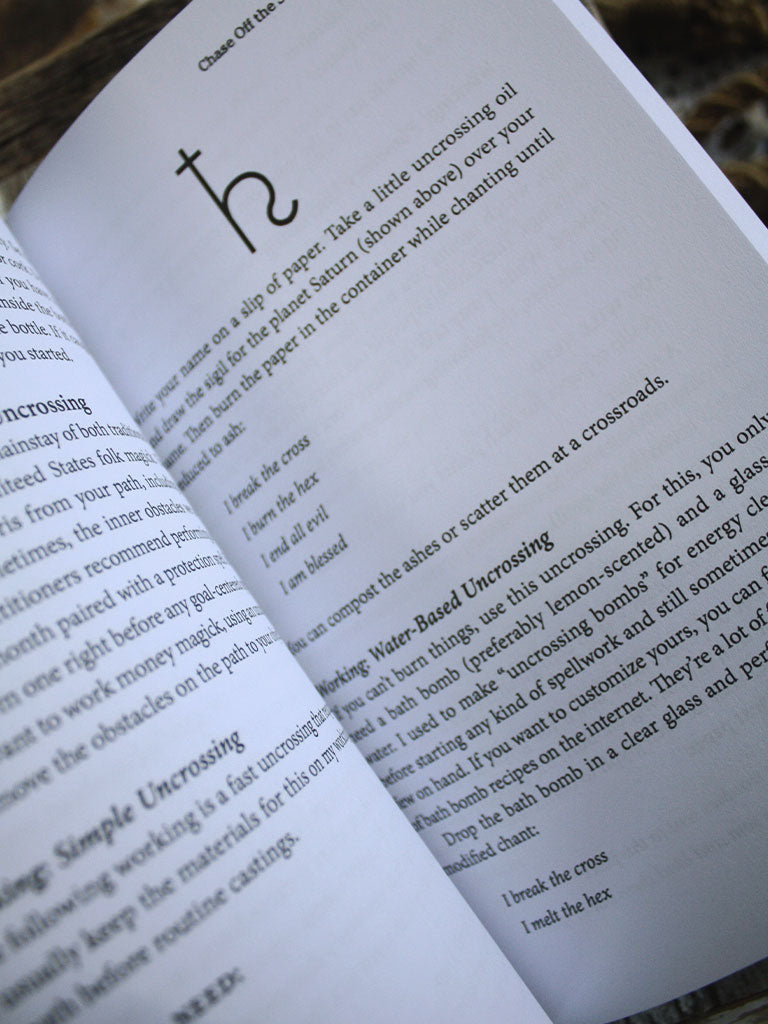 or cork.
you have
inside the
bottle. If it
you started.
Uncrossing
mainstay of both
States folk magic
from your path,
the inner obstacles
recommend
month paired with a protection
one right before any
to work money magic, using an
move the obstacles on the path to your
Simple Uncrossing
following working is a fast uncrossing that
usually keep the materials for this on my
before routine castings.
NEED:
Chase Off the
♄
your name on a slip of paper. Take a little uncrossing oil
and draw the sigil for the planet Saturn (shown above) over your
Then burn the paper in the container while chanting until
to ash:
I break the cross
I burn the hex
I end all evil
I am blessed
You can compost the ashes or scatter them at a crossroads.
Working: Water-Based Uncrossing
If you can't burn things, use this uncrossing. For this, you only
need a bath bomb (preferably lemon-scented) and a glass
water. I used to make "uncrossing bombs" for energy
before starting any kind of spellwork and still sometimes
on hand. If you want to customize yours, you can
of bath bomb recipes on the internet. They're a lot of
Drop the bath bomb in a clear glass and
modified chant:
I break the cross
I melt the hex